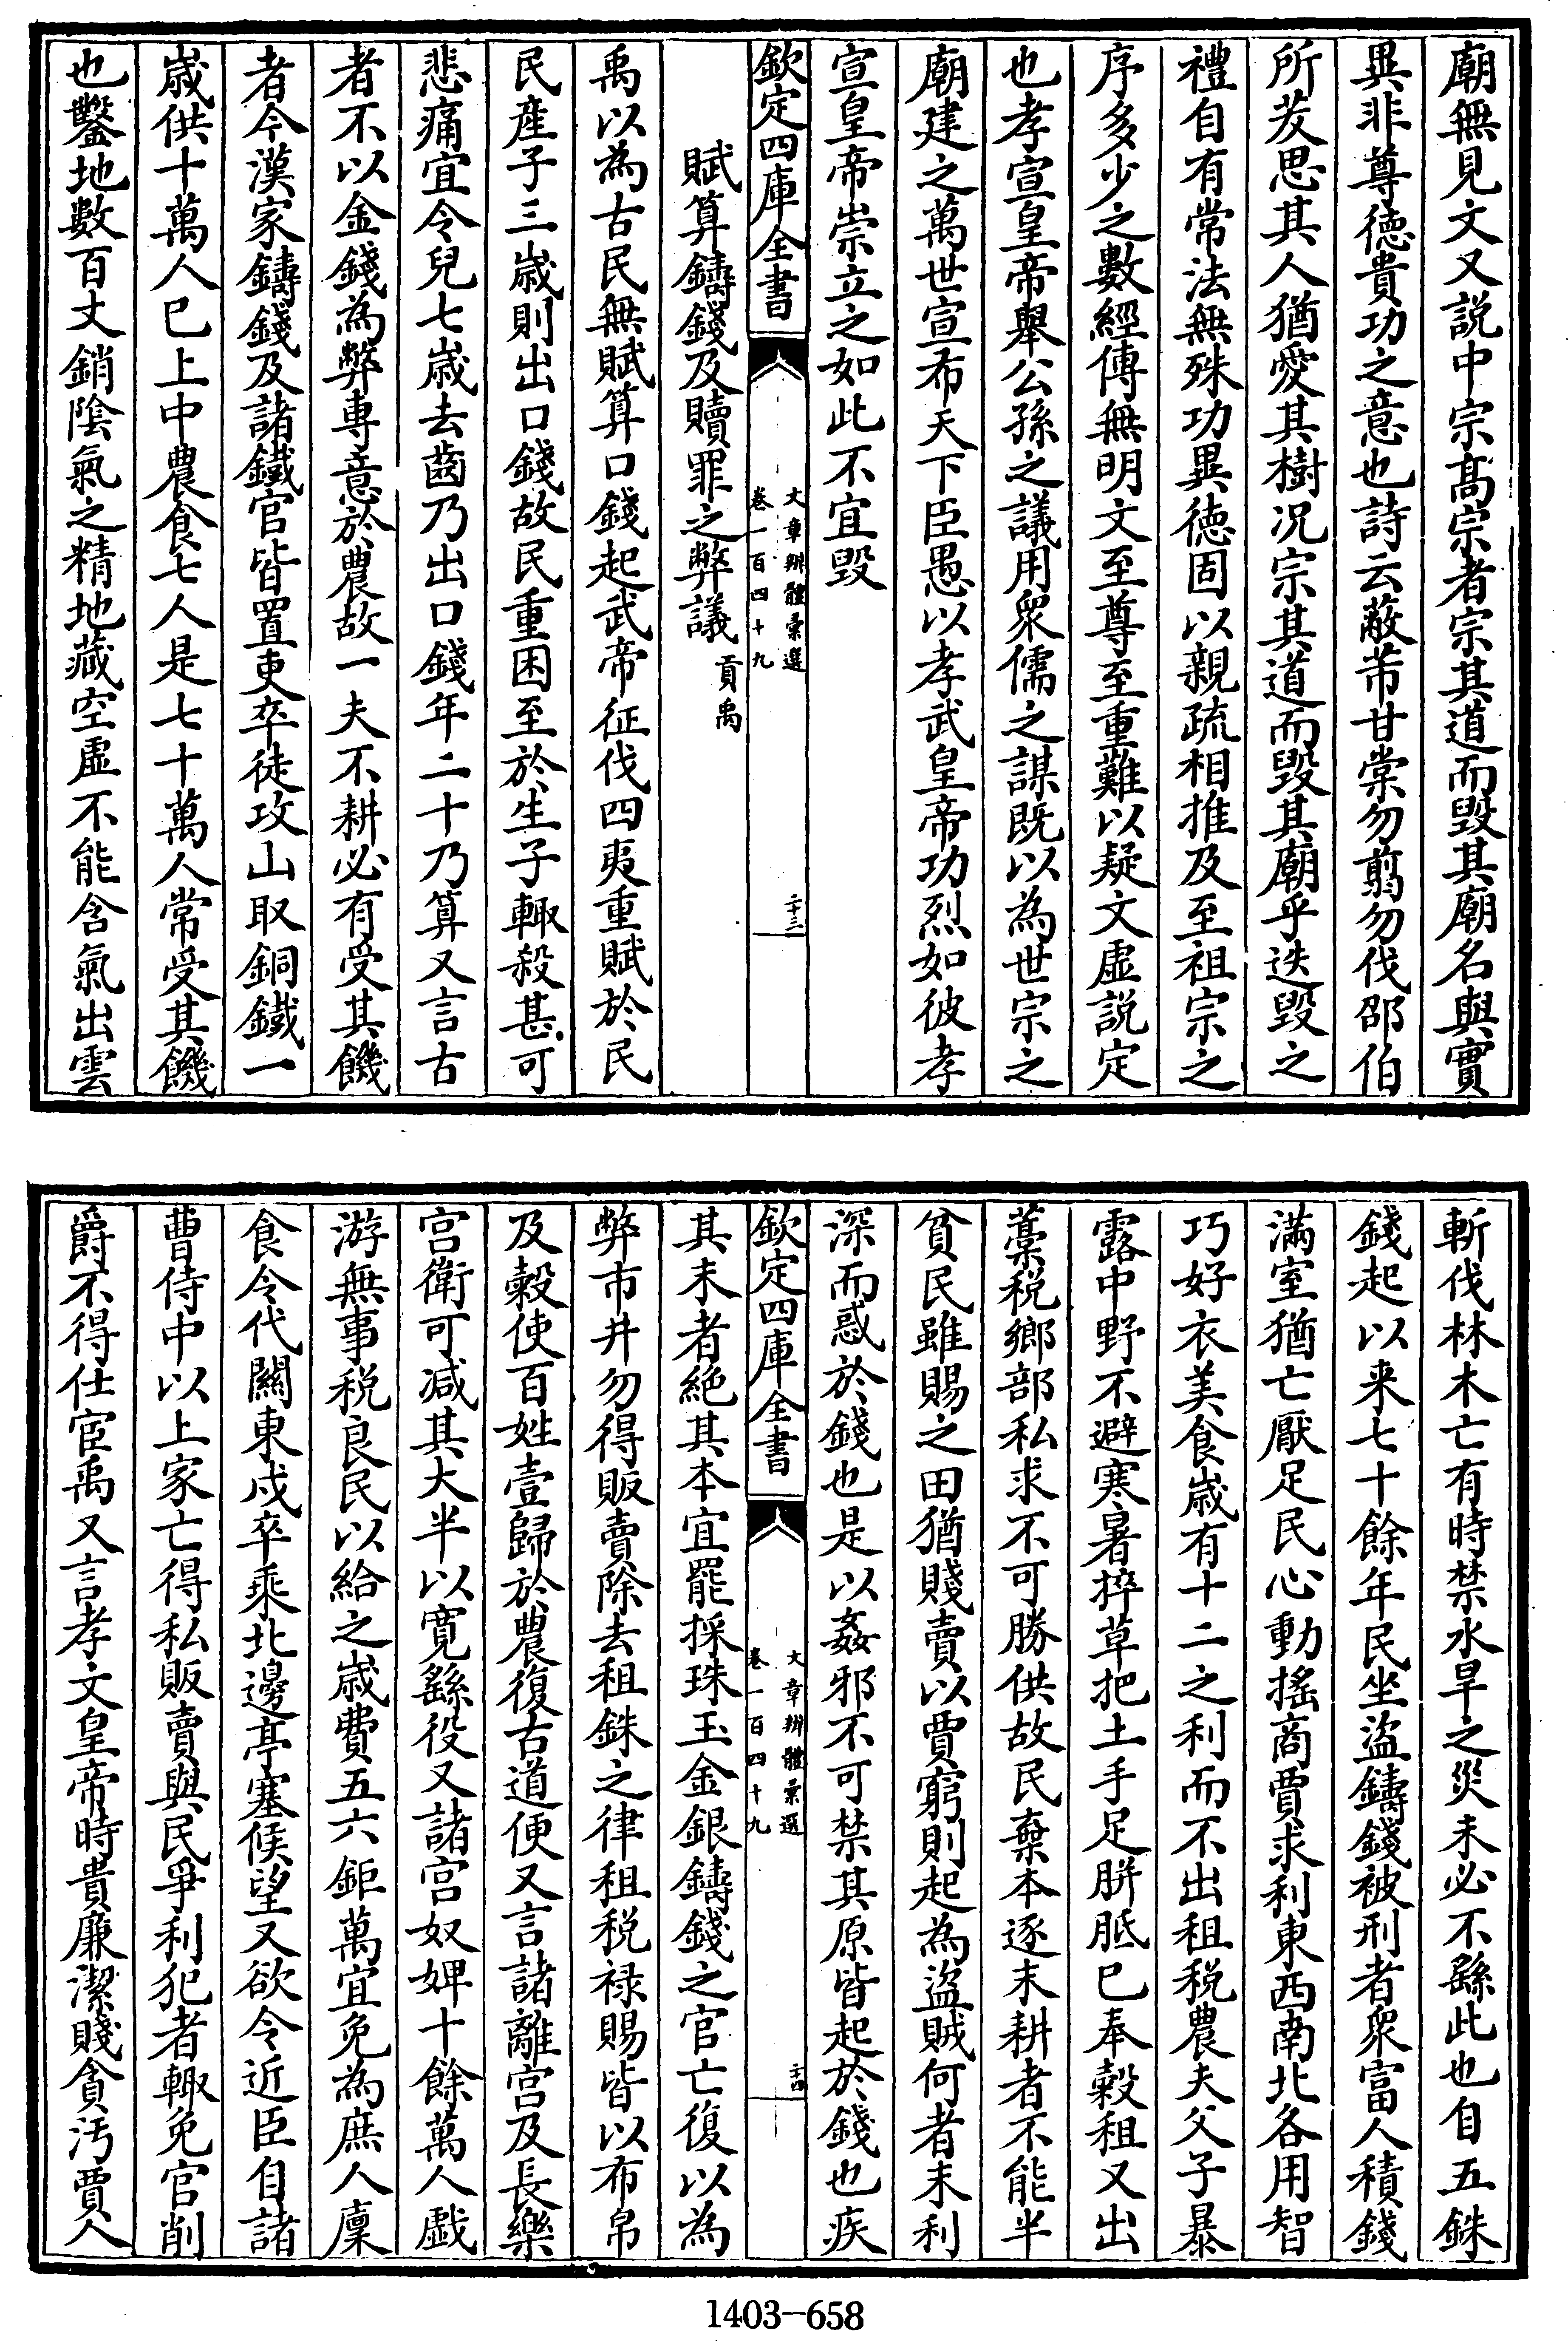 廟無見文又説中宗髙宗者宗其道而毁其廟名與實
異非尊徳貴功之意也詩云蔽芾甘棠勿翦勿伐邵伯
所茇思其人猶愛其樹况宗其道而毁其廟乎迭毁之
禮自有常法無殊功異徳固以親疏相推及至祖宗之
序多少之數經傳無明文至尊至重難以疑文虚説定
也孝宣皇帝舉公孫之議用衆儒之謀既以為世宗之
廟建之萬世宣布天下臣愚以孝武皇帝功烈如彼孝
宣皇帝崇立之如此不宜毁
欽定四庫全書
文章辨體彙選
卷一百四十九
二十三
賦算鑄錢及贖罪之弊議 貢禹
禹以為古民無賦算口錢起武帝征伐四夷重賦於民
民産子三歳則出口錢故民重困至於生子輙殺甚可
悲痛宜令兒七歳去齒乃出口錢年二十乃算又言古
者不以金錢為弊專意於農故一夫不耕必有受其饑
者今漢家鑄錢及諸鐵官皆置吏卒徒攻山取銅鐵一
歳供十萬人已上中農食七人是七十萬人常受其饑
也鑿地數百丈銷隂氣之精地藏空虚不能含氣出雲
斬伐林木亡有時禁水旱之災未必不繇此也自五銖
錢起以来七十餘年民坐盗鑄錢被刑者衆富人積錢
滿室猶亡厭足民心動搖商賈求利東西南北各用智
巧好衣美食歳有十二之利而不出租税農夫父子暴
露中野不避寒暑捽草把土手足胼胝已奉榖租又出
藳税鄉部私求不可勝供故民棄本逐末耕者不能半
貧民雖賜之田猶賤賣以賈窮則起為盗賊何者末利
深而惑於錢也是以姦邪不可禁其原皆起於錢也疾
欽定四庫全書
文章辨體彙選
卷一百四十九
二十四
其末者絶其本宜罷採珠玉金銀鑄錢之官亡復以為
弊市井勿得販賣除去租銖之律租税禄賜皆以布帛
及榖使百姓壹歸於農復古道便又言諸離宫及長樂
宫衛可减其大半以寛繇役又諸宫奴婢十餘萬人戯
游無事税良民以給之歳費五六鉅萬宜免為庶人廩
食令代關東戍卒乘北邊亭塞候望又欲令近臣自諸
曹侍中以上家亡得私販賣與民爭利犯者輙免官削
爵不得仕宦禹又言孝文皇帝時貴廉潔賤貪汚賈人
1403—658